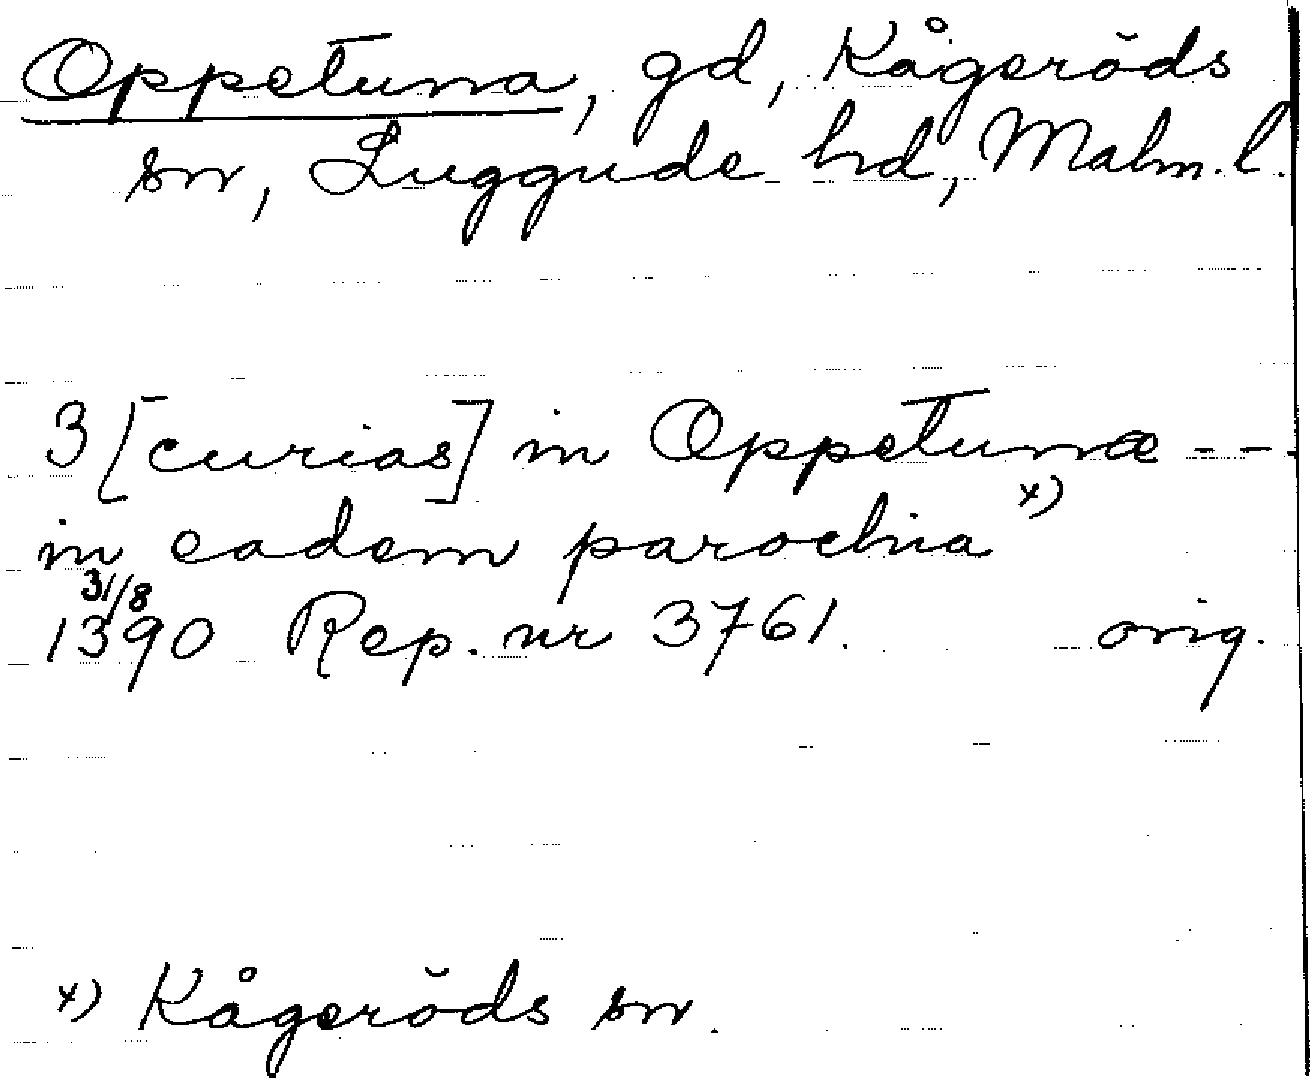 Oppetuna, gd, Kågeröds
sn, Luggude hd, Malm. l.
3 [curias] in Oppetunæ - - -
in eadem parochia x)
31/8
1390 Rep. nr 3761. orig.
x) Kågeröds sn.